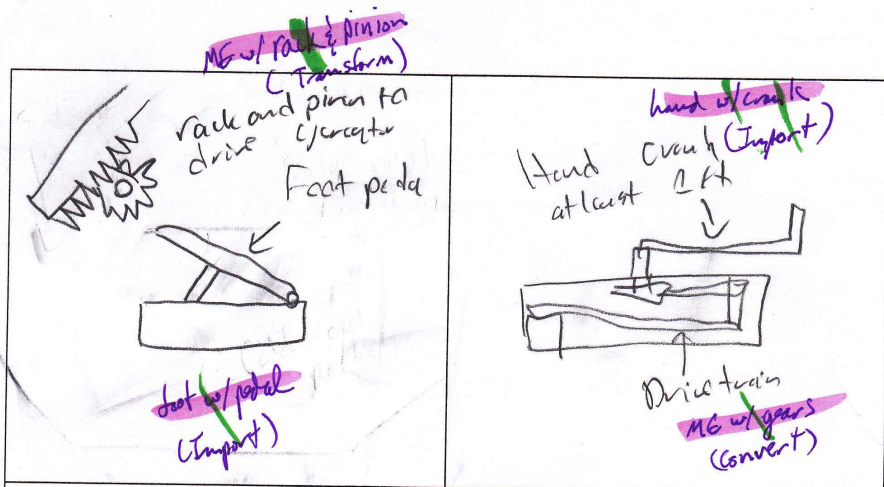 ME w/ rack & pinion
(Transform)
rack and pinon to
drive
Foot pedal
foot w/ pedal
(Import)
hand w/ crank
(Import)
Hand Crank
at least 1 ft
Drive train
ME w/ gears
(Convert)